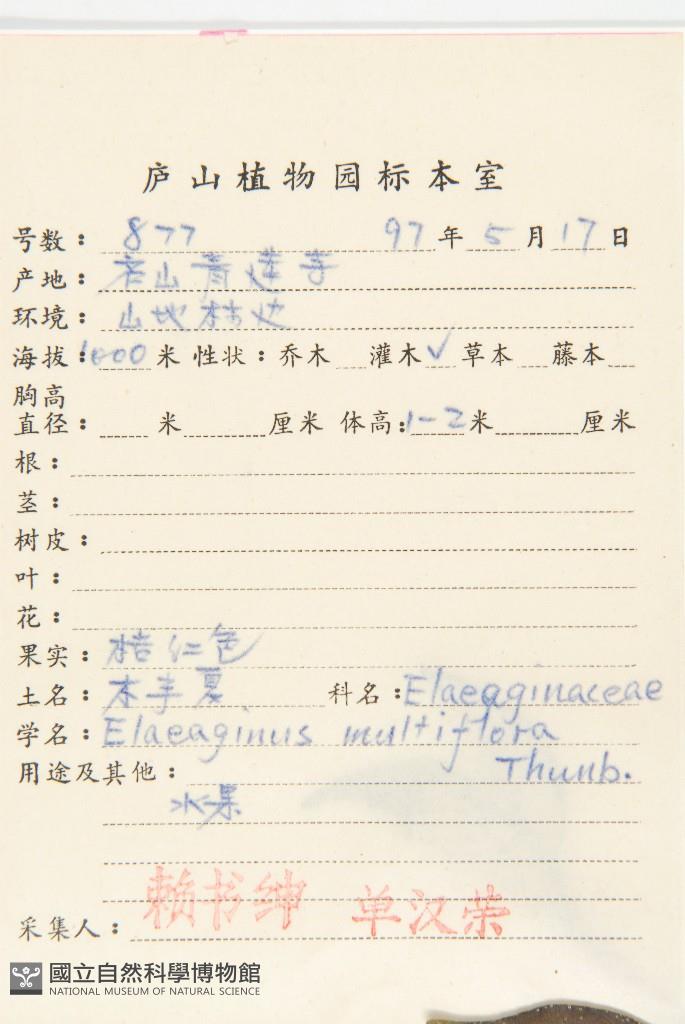 庐山植物园标本室
号数： 877 97年5月17日
产地： 庐山青莲寺
环境： 山地林边
海拔：1000米 性状：乔木 灌木✓ 草本 藤本
胸高
直径： 米 厘米 体高：1-2米 厘米
根：
茎：
树皮：
叶：
花：
果实： 桔仁色
土名： 木半夏 科名：Elaeaginaceae
学名：Elaeaginus multiflora
用途及其他： Thunb.
水果
采集人： 赖书绅 单汉荣
國立自然科學博物館
NATIONAL MUSEUM OF NATURAL SCIENCE